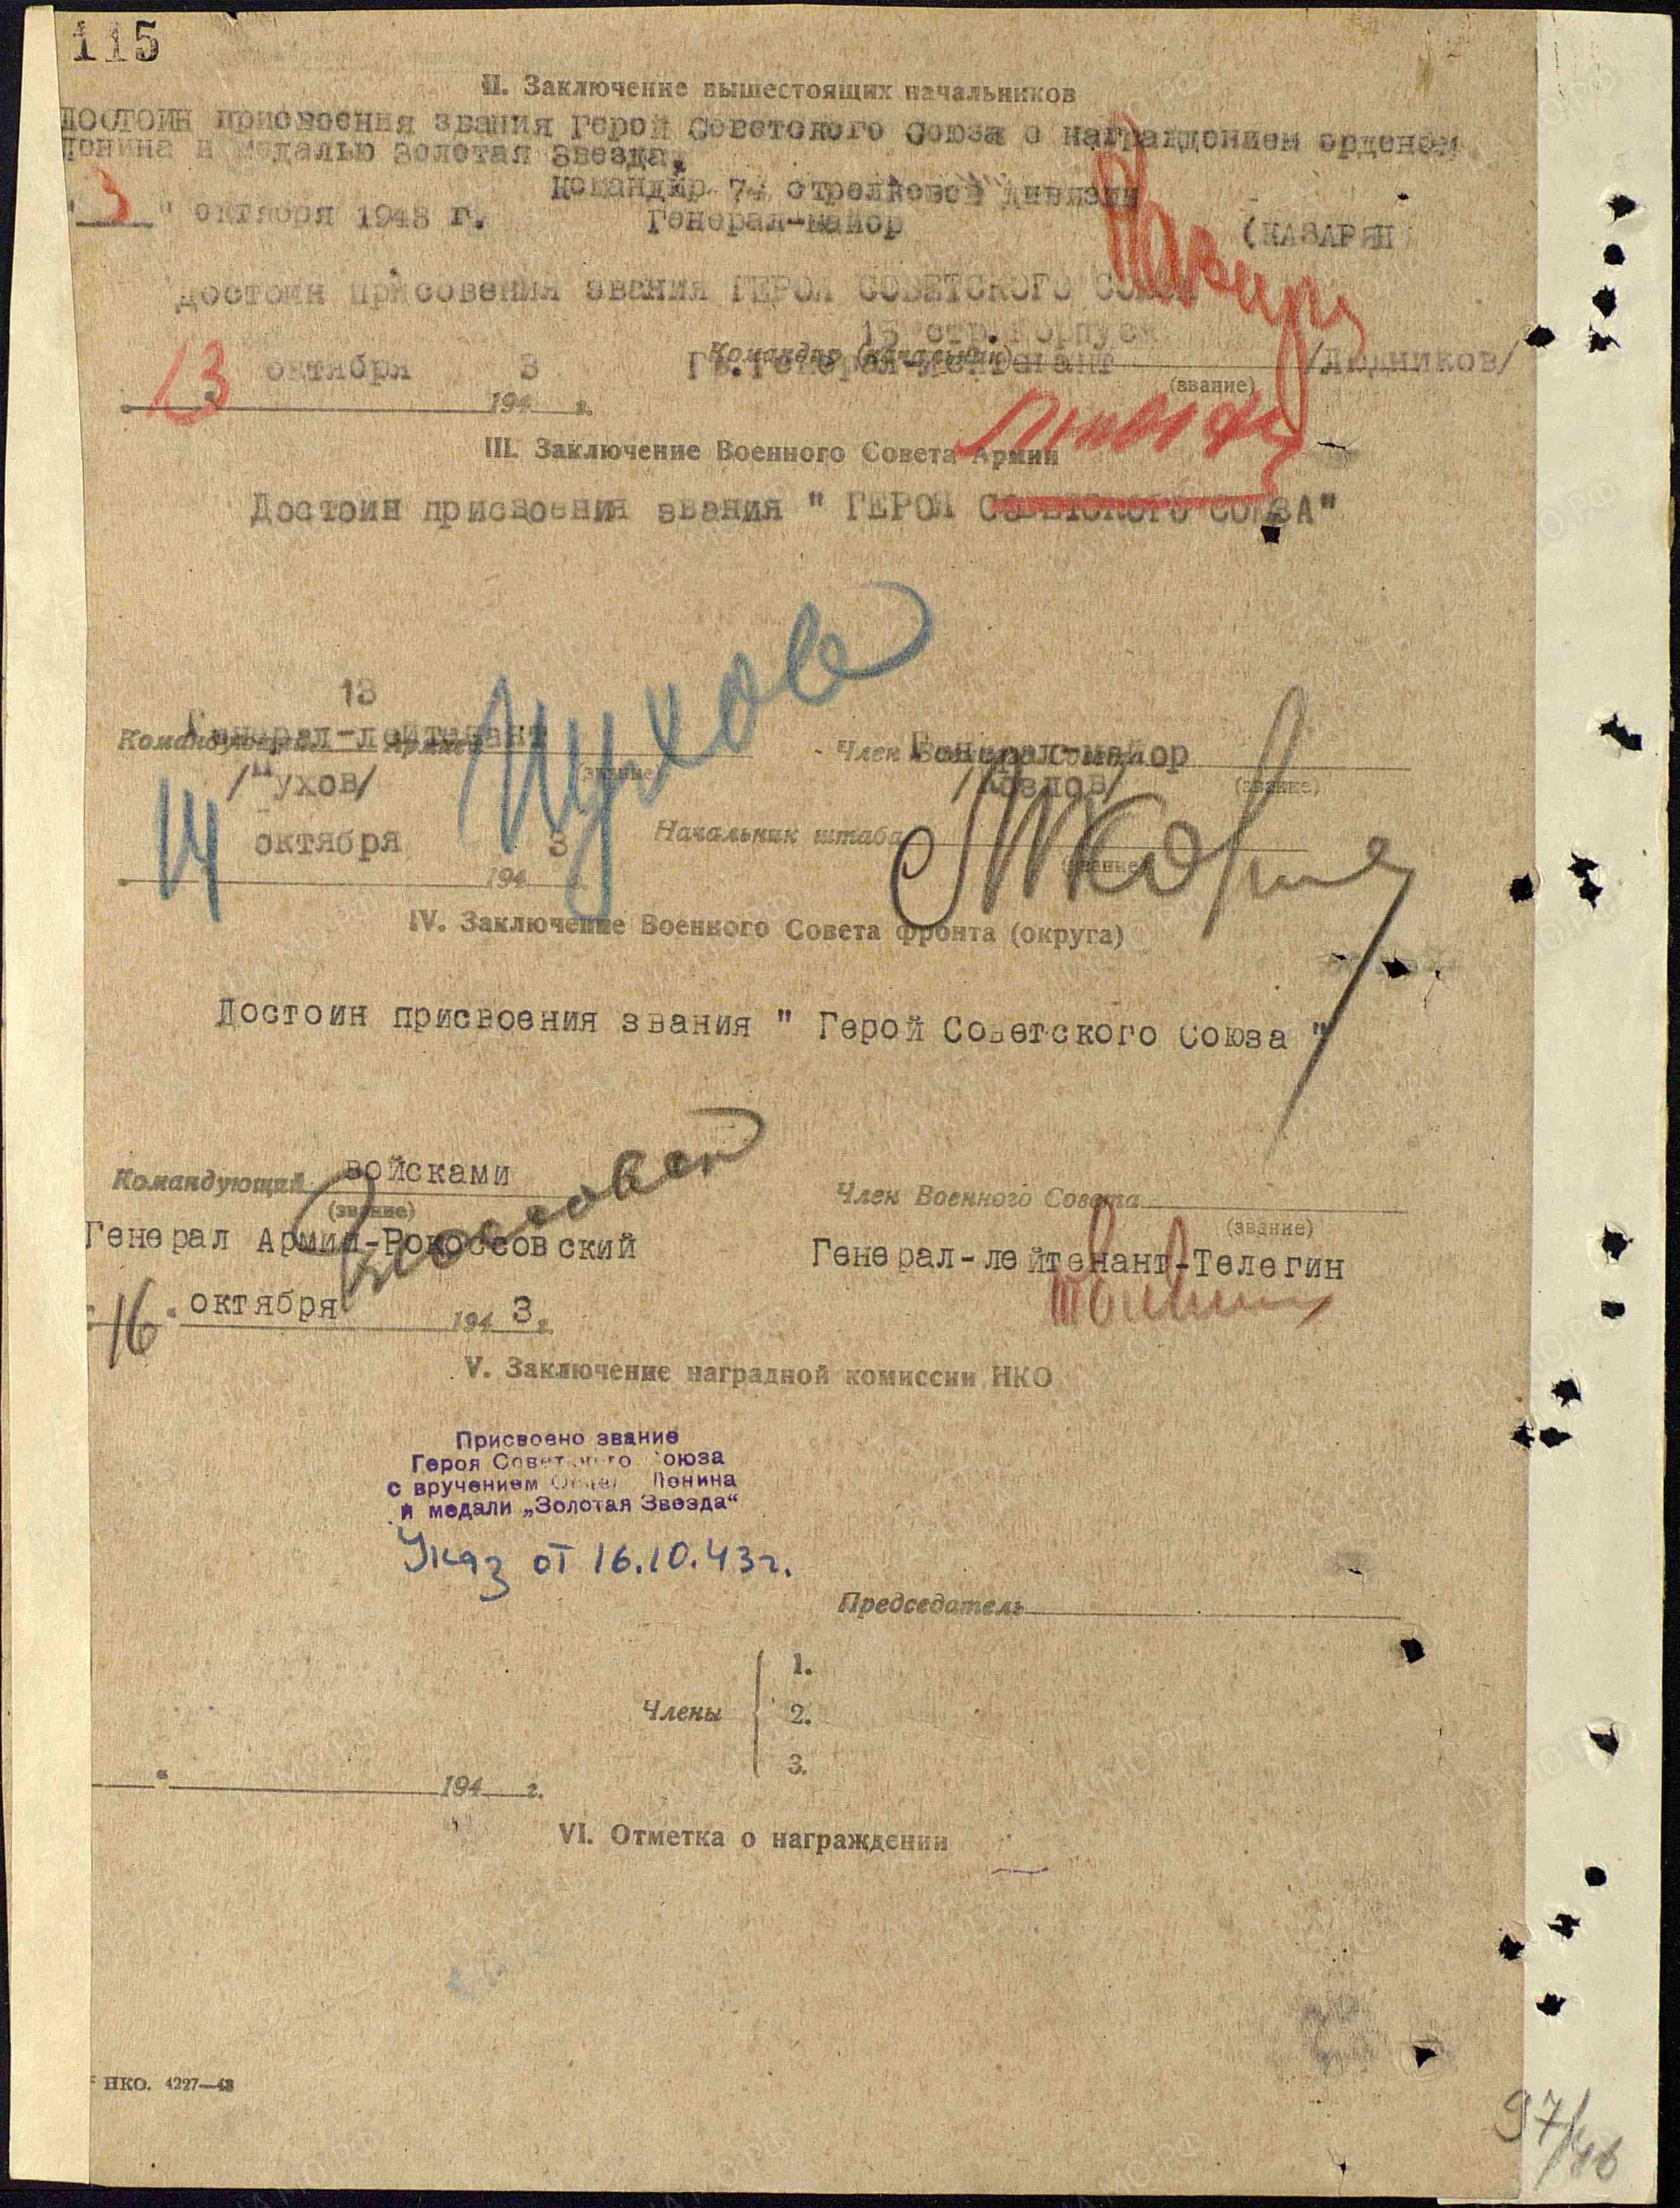 115
II. Заключение вышестоящих начальников
достоин присвоения звания Герой Советского Союза с награждением орденом
Ленина и медалью Золотая Звезда.
Командир 74 стрелковой дивизии
"3" октября 1943 г. Генерал-майор (КАЗАРЯН)
Достоин присовения звания ГЕРОЯ СОВЕТСКОГО СОЮЗА
15 стр. Корпуса
Командир (начальник)
13 октября 3 Гв.Генерал-лейтенант /Людников/
(звание)
194 г.
III. Заключение Военного Совета Армии
Достоин присвоения звания " ГЕРОЯ СОВЕТСКОГО СОЮЗА"
13
Командующий армией Генерал-лейтенант Член Военного Совета Генерал-майор
/Пухов/ (звание) /Козлов/ (звание)
Пухов
14 октября 3 Начальник штаба
(звание)
194 г.
IV. Заключение Военного Совета фронта (округа)
Достоин присвоения звания " Герой Советского Союза "
Командующий войсками Член Военного Совета
(звание) (звание)
Генерал Армии-Рокоссовский Генерал-лейтенант-Телегин
"16" октября 1943 г.
V. Заключение наградной комиссии НКО
Присвоено звание
Героя Советского Союза
с вручением Ордена Ленина
и медали „Золотая Звезда“
Указ от 16.10.43г.
Председатель
1.
Члены 2.
3.
" 194 г.
VI. Отметка о награждении
НКО. 4227—43
97/46